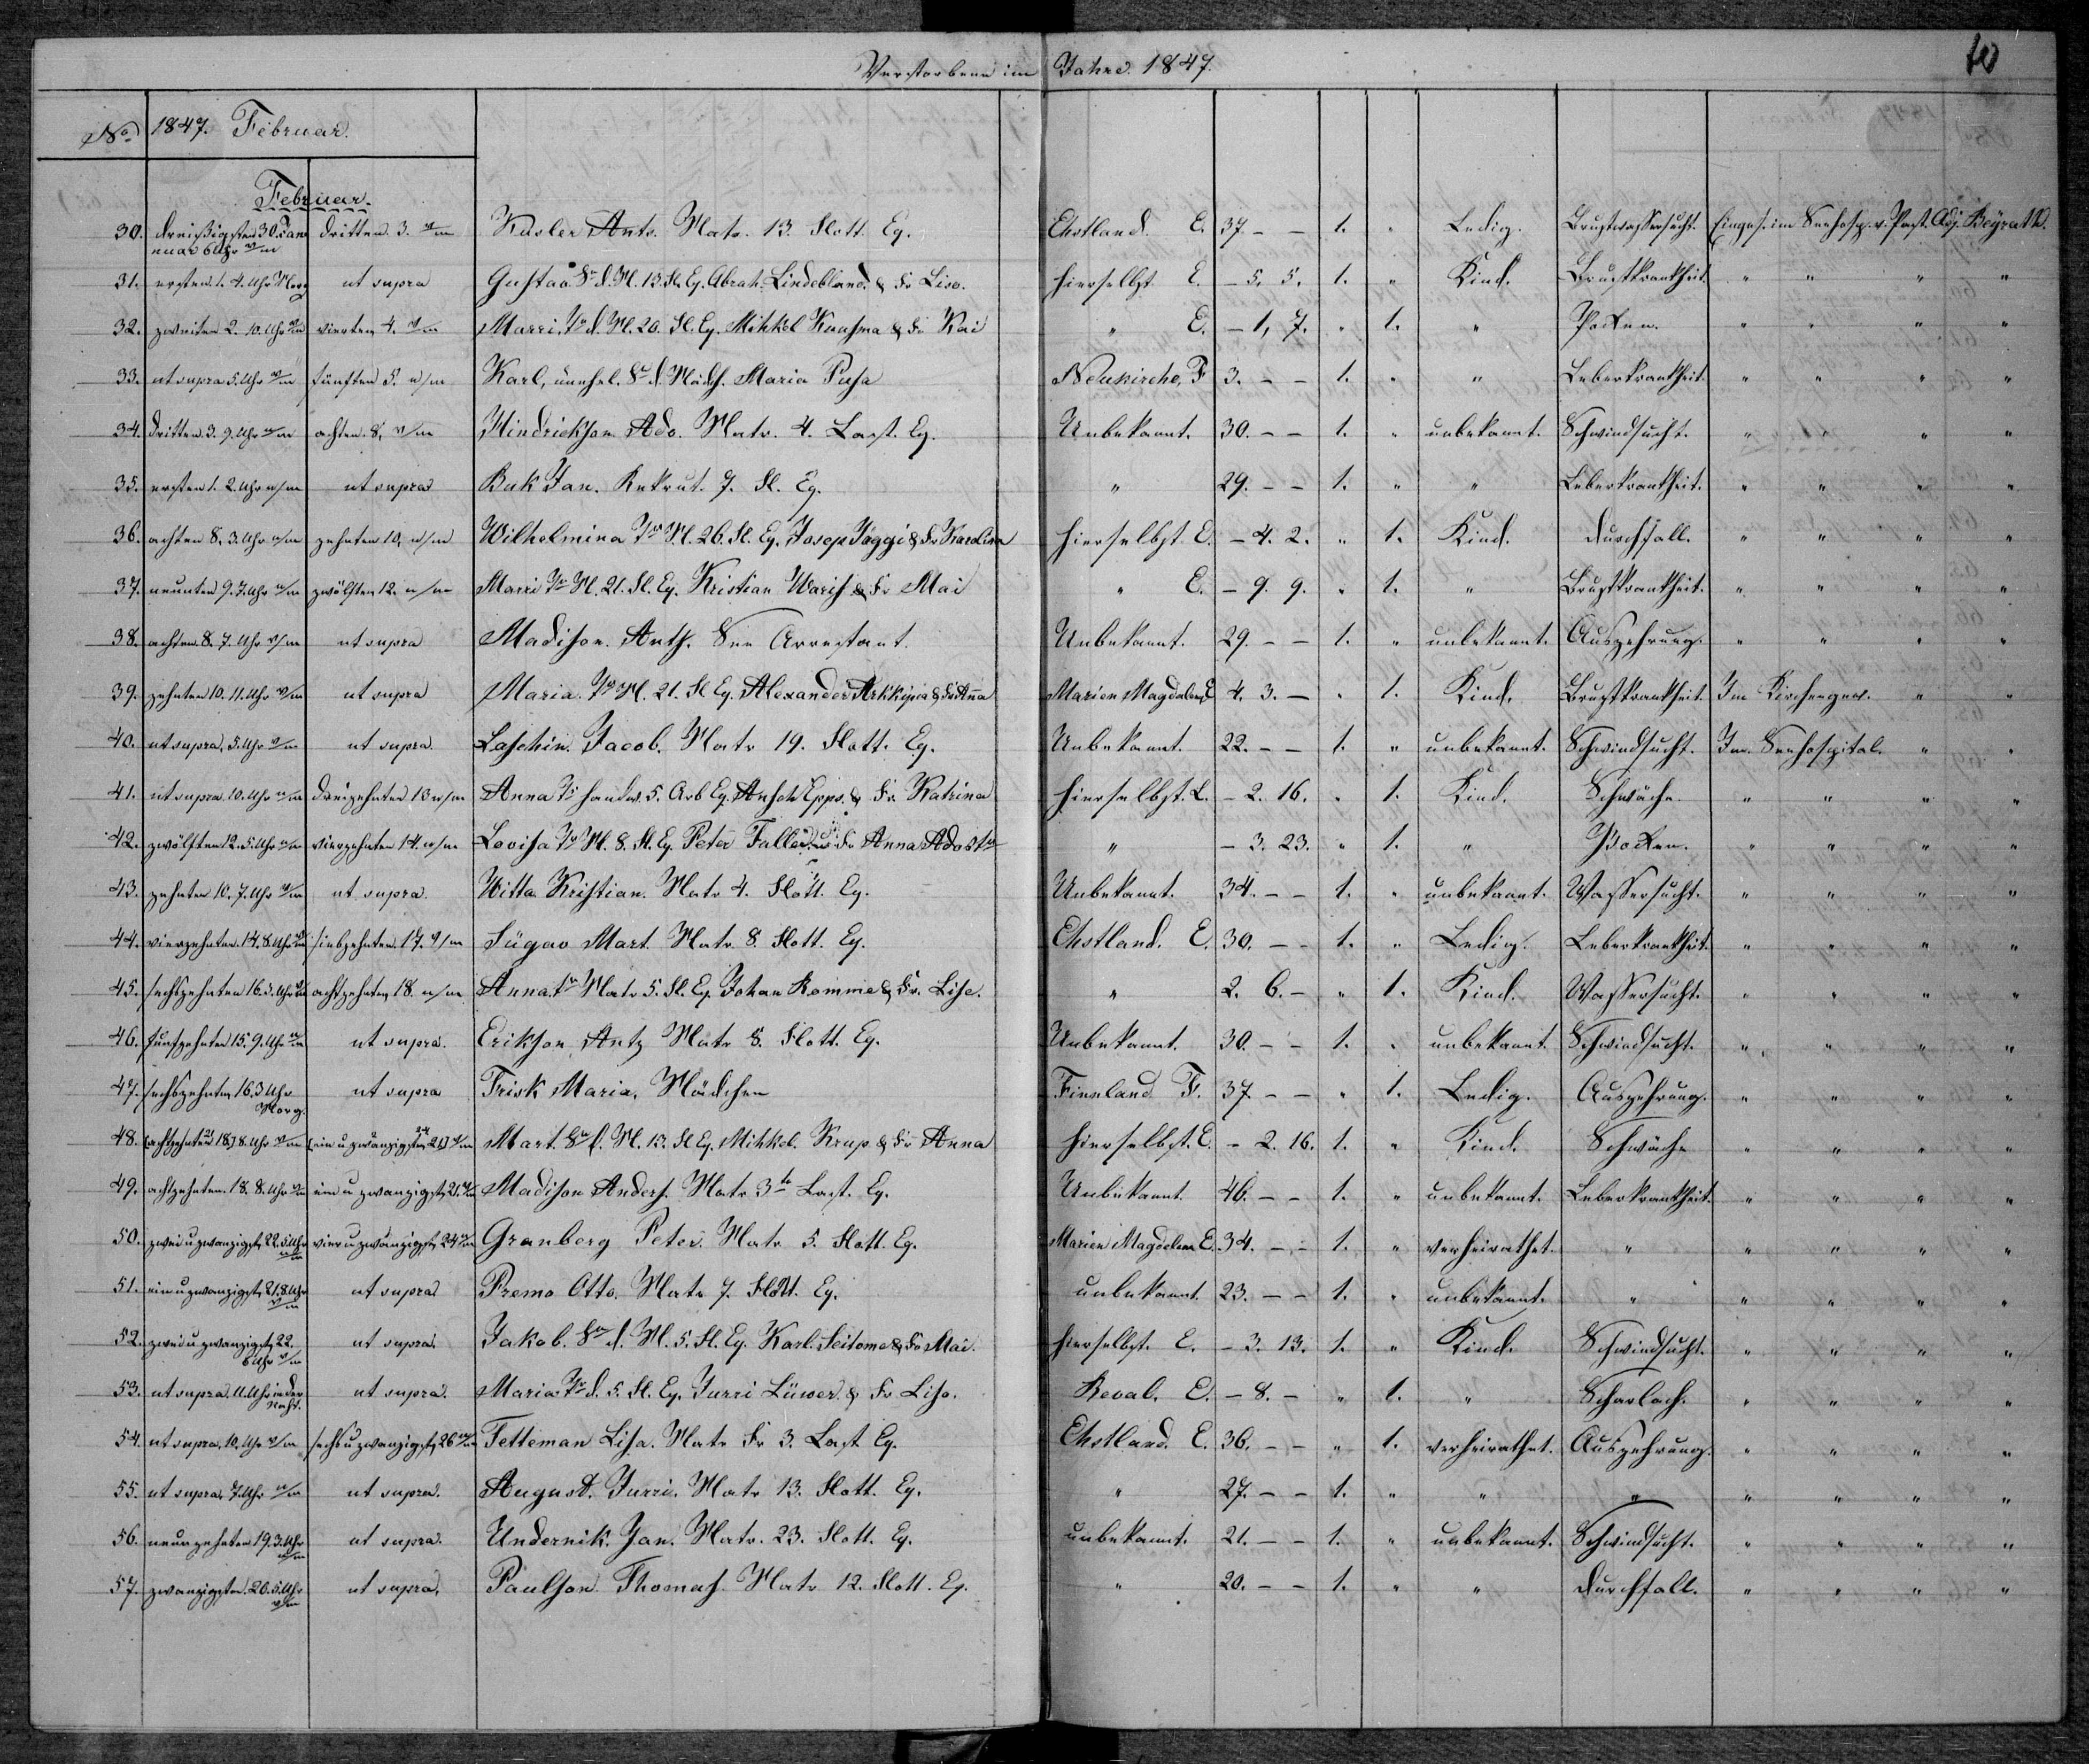 Verstorbene im Jahre 1847.
10
No 1847. Februar.
Februar.
30. dreißigsten 30. Jan dritten 3. v/m Kusler Ants. Matr. 13. Flott. Eq. Ehstland. E. 37. - - 1. " Ledig. Brustwassersucht. Einges. im Seehosp. v. Past. Adj. Beyrath.
nuar 6 Uhr v/m
31. ersten 1. 4. Uhr Morg ut supra Gustav Sn d. M. 13. Fl. Eq. Abrah. Lindebland & Fr Liso. hierselbst E. - 5. 5. 1. " Kind. Brustkrankheit. " " " "
32. zweiten 2. 10. Uhr v/m vierten 4. v/m Marri, Tr d. M. 20. Fl. Eq. Mihkel Kuusma & Fr Kai " E. - 1, 7. " 1. " Pocken. " " " "
33. ut supra 5. Uhr v/m fünften 5. n/m Karl, unehel. Sn d. Mädch. Maria Pusa Neukirche, F. 3. - - 1. " " Leberkrankheit. " " " "
34. dritten 3. 9. Uhr n/m achten 8, v/m Hindrickson Ado. Matr. 4. Last. Eq. Unbekannt. 30. - - 1. " unbekannt. Schwindsucht. " " " "
35. ersten 1. 2. Uhr n/m ut supra Buk Jan. Rekrut. 7. Fl. Eq. " 29. - - 1. " " Leberkrankheit. " " " "
36. achten 8, 3. Uhr n/m zehnten 10, n/m Wilhelmina Tr M. 26. Fl. Eq. Josep Jäggi & Fr Karolina hierselbst E. - 4. 2. " 1. Kind. Durchfall. " " " "
37. neunten 9. 7. Uhr n/m zwölften 12. n/m Marri Tr M. 21. Fl. Eq. Kristian Waris & Fr Mai " E. - 9. 9. " 1. " Brustkrankheit. " " " "
38. achten 8. 7. Uhr v/m ut supra Madison. Ants. See Arrestant. Unbekannt. 29. - - 1. " unbekannt. Auszehrung. " " " "
39. zehnten 10. 11. Uhr v/m ut supra Maria. Tr M. 21. Fl Eq. Alexander & Fr Anna Marien Magdalen. E 4. 3. - " 1. Kind. Brustkrankheit Im Kirchengew. " "
40. ut supra, 5. Uhr v/m ut supra. Laschin. Jacob. Matr 19. Flott. Eq. Unbekannt. 22. - - 1. " unbekannt. Schwindsucht. Im Seehospital. " "
41. ut supra 10. Uhr n/m dreizehnten 13 n/m Anna Tr handw. 5. Arb Eq. Ansch Epps. & Fr. Katrina hierselbst. L. - 2. 16. " 1. Kind. Schwäche. " " " "
42. zwölften 12. 5. Uhr n/m vierzehnten 14. n/m Lovisa Tr M. 8. Fl. Eq. Peter Faller. Fr Anna Adost " - 3. 23. " 1. " Pocken. " " " "
43. zehnten 10. 7. Uhr v/m ut supra. Witta Kristian. Matr 4. Flott. Eq. Unbekannt. 34. - - 1. " unbekannt. Wassersucht. " " " "
44. vierzehnten. 14. 8. Uhr v/m siebzehnten 17. v/m Sügav Mart. Matr 8. Flott. Eq. Ehstland. E. 30. - - 1. " Ledig. Leberkrankheit. " " " "
45. sechszehnten 16. 5. Uhr achtzehnten 18. n/m Anna. Tr Matr 5. Fl. Eq. Johan Romme & Fr. Lise. " 2. 6. - " 1. Kind. Wassersucht. " " " "
46. funfzehnten 15. 9. Uhr n/m ut supra. Erikson, Antz Matr 8. Flott. Eq. Unbekannt. 30. - - 1. " unbekannt. Schwindsucht. " " " "
47. sechszehnten 16. 3 Uhr ut supra Frisk Maria, Mädchen Finnland F. 37 - - " 1. Ledig. Auszehrung. " " " "
Morg.
48. achtzehnten 18. 8. Uhr v/m ein u zwanzigsten 21. v/m Mart. Sn d. M. 13. Fl Eq. Mihkel. Krup & Fr Anna hierselbst. E. - 2. 16. 1. " Kind. Schwäche " " " "
49. achtzehnten. 18. 8. Uhr v/m ein u zwanzigst. 21. Madison Anders. Matr 3te Last. Eq. Unbekannt 46. - - 1. " unbekannt. Leberkrankheit. " " " "
50. zwei u zwanzigst. 22. 5. Uhr vier u zwanzigst. 24 Granberg Peter. Matr 5. Flott. Eq. Marien Magdalen E. 34. - - 1. " verheirathet. " " " " "
n/m
51. ein u zwanzigst. 21. 8. Uhr ut supra Premo Otto. Matr 7. Flott. Eq. unbekannt. 23. - - 1. " unbekannt. " " " " "
v/m
52. zwei u zwanzigst. 22. ut supra. Jakob. Sn d. M. 5. Fl. Eq. Karl. Seitome & Fr Mai. hierselbst. E. - 3. 13. 1. " Kind. Schwindsucht. " " " "
6 Uhr v/m
53. ut supra, 11. Uhr in der ut supra. Maria Tr d. 5. Fl. Eq. Jurri Lüwer & Fr Liso. Reval. E. - 8. - " 1. " Scharlach. " " " "
Nacht.
54. ut supra, 10. Uhr v/m sechs u zwanzigst. 26 Tetteman Lisa. Matr Fr 3. Last Eq. Ehstland. E. 36. - - " 1. verheirathet. Auszehrung. " " " "
55. ut supra, 7. Uhr n/m ut supra. August. Jurri. Matr 13. Flott. Eq. " 27. - - 1. " " " " " " "
56. neunzehnten 19. 3. Uhr ut supra. Undernik. Jan. Matr. 23. Flott. Eq. unbekannt. 21. - - 1. " unbekannt. Schwindsucht. " " " "
n/m
57. zwanzigsten. 20. 5. Uhr ut supra, Paulson. Thomas. Matr 12. Flott. Eq. " 20. - - 1. " " Durchfall. " " " "
v/m